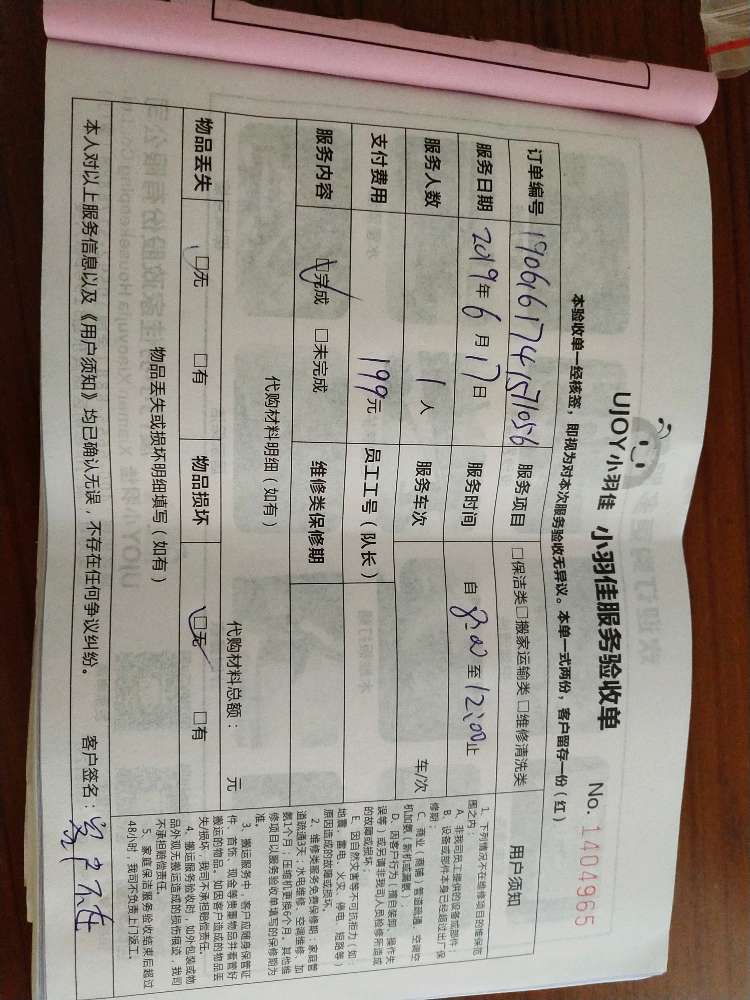 UJOY小羽佳 小羽佳服务验收单 No. 1404965
本验收单一经核签，即视为对本次服务验收无异议。本单一式两份，客户留存一份（红）
订单编号 190616174571056 服务项目 □保洁类□搬家运输类 □维修清洗类 用户须知
服务日期 2019年6月17日 服务时间 自 8:00 至 12:00 止
服务人数 1 人 服务车次 车/次
支付费用 199元 员工工号（队长）
服务内容 □完成 □未完成 维修类保修期
代购材料明细（如有）
代购材料总额： 元
物品丢失 □无 □有 物品损坏 □无 □有
物品丢失或损坏明细填写（如有）
1、下列情况不在维修项目的维保范
围之内：
A、非我司员工提供的设备或部件；
B、设备或部件本身已经超过出厂保
修期；
C、商业（商铺）管道疏通、空调空
机加氨（新机或漏氨）
D、因客户行为（擅自装卸、操作失
误等）或另请非我司人员检修所造成
的故障或损坏；
E、因自然灾害等不可抗拒力（如：
地震、雷电、火灾、停电、短路等）
原因造成的故障或损坏。
2、维修类服务免费保修期：家庭管
道疏通3天；水电维修、空调维修、加
氨1个月，压缩机更换6个月。其他维
修项目以服务验收单填写的保修期为
准。
3、搬运服务中，客户应随身保管证
件、首饰、现金等贵重物品并看管好
搬运的物品。如因客户造成的物品丢
失/损坏，我司不承担赔偿责任。
4、搬运服务验收时，如外包装或物
品外观无搬运造成的损伤痕迹，我司
不承担赔偿责任。
5、家庭保洁服务验收结束后超过
48小时，我司不负责上门返工。
本人对以上服务信息以及《用户须知》均已确认无误，不存在任何争议纠纷。 客户签名：客户不在